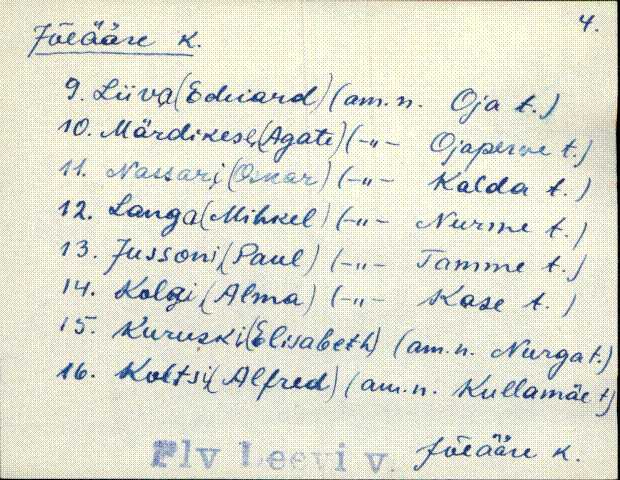 4.
Jõeääre k.
9. Liiva (Eduard) (am.n. Oja t.)
10. Märdikese, (Agate) (-„- Ojaperve t.)
11. Nassari, (Oskar) (-„- Kalda t.)
12. Langa (Mihkel) (-„- Nurme t.)
13. Jussoni, (Paul) (-„- Tamme t.)
14. Kolgi (Alma) (-„- Kase t.)
15. Kuruski (Elisabeth) (am.n. Nurga t.)
16. Koltsi, (Alfred) (am.n. Kullamäe t)
Plv Leevi v. Jõeääre k.